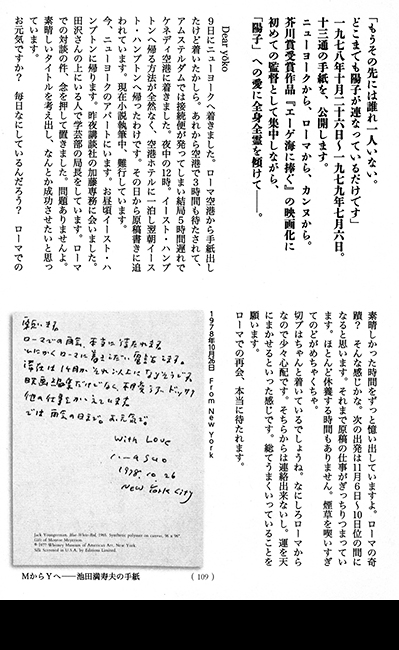 「もうその先には誰れ一人いない。
どこまでも陽子が連なっているだけです」
一九七八年十月二十六日〜一九七九年七月六日。
ニューヨークから、ローマから、カンヌから。
十三通の手紙を、公開します。
芥川賞受賞作品『エーゲ海に捧ぐ』の映画化に
初めての監督として集中しながら、
「陽子」への愛に全身全霊を傾けて──。
Dear yoko
9日にニューヨークへ着きました。ローマ空港から手紙出し
たけど着いたかしら。あれから空港で3時間も待たされて、
アムステルダムでは接続便が発ってしまい結局5時間遅れで
ケネディ空港に着きました。夜中の12時。イースト・ハンプ
トンへ帰る方法が全然なく、空港ホテルに一泊し翌朝イース
ト・ハンプトンへ帰ったわけです。その日から原稿書きに追
われています。現在小説執筆中、難行しています。
今、ニューヨークのアパートにいます。お昼頃イースト・ハ
ンプトンに帰ります。昨夜講談社の加藤専務に会いました。
田沢さんの上にいる人で学芸部の局長をしています。ローマ
での対談の件、念を押して置きました。問題ありませんよ。
素晴しいタイトルを考え出し、なんとか成功させたいと思っ
ています。
お元気ですか？　毎日なにしているんだろう？　ローマでの
素晴しかった時間をずっと憶い出していますよ。ローマの奇
蹟？　そんな感じかな。次の出発は11月6日〜10日位の間に
なると思います。それまで原稿の仕事がぎっちりつまってい
ます。ほとんど休養する時間もありません。煙草を喫いすぎ
てのどがめちゃくちゃ。
切プはちゃんと着いているでしょうね。なにしろローマから
なので少々心配です。そちらからは連絡出来ないし。運を天
にまかせるといった感じです。総てうまくいっていることを
願います。
ローマでの再会、本当に待たれます。
1978年10月26日　From New york
願います。
ローマでの再会、本当に待たれます。
では再会の日まで。お元気で。
With Love
masuo
1978. 10. 26
New York City
Jack Youngerman. Blue-White-Red, 1965. Synthetic polymer on canvas,
© 1977 Whitney Museum of American Art, New York
Silk Screened in U.S.A. by Editions Limited.
MからYへ──池田満寿夫の手紙
( 109 )